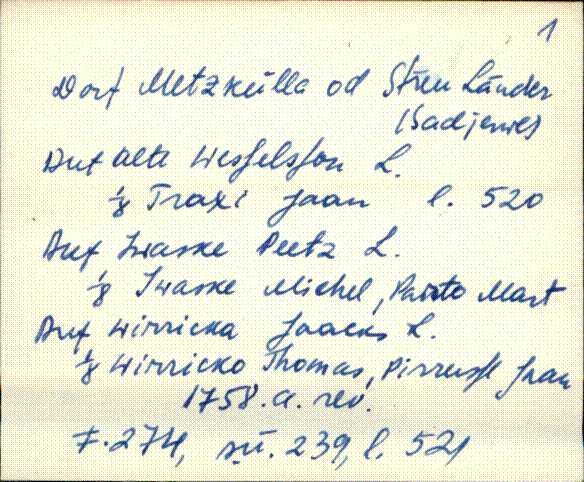 1
Dorf Metzkülla od Streu Länder
(Sadjerwe)
Auf alte Wesselsson L.
1/8 Traxi Jaan l. 520
Auf Iwaske Peetz L.
1/8 Iwaske Michel, Mart
Auf Wirricka Jaacks L.
1/8 Wirricko Thomas, Jaan
1758. a. rev.
F. 274, sü. 239, l. 521